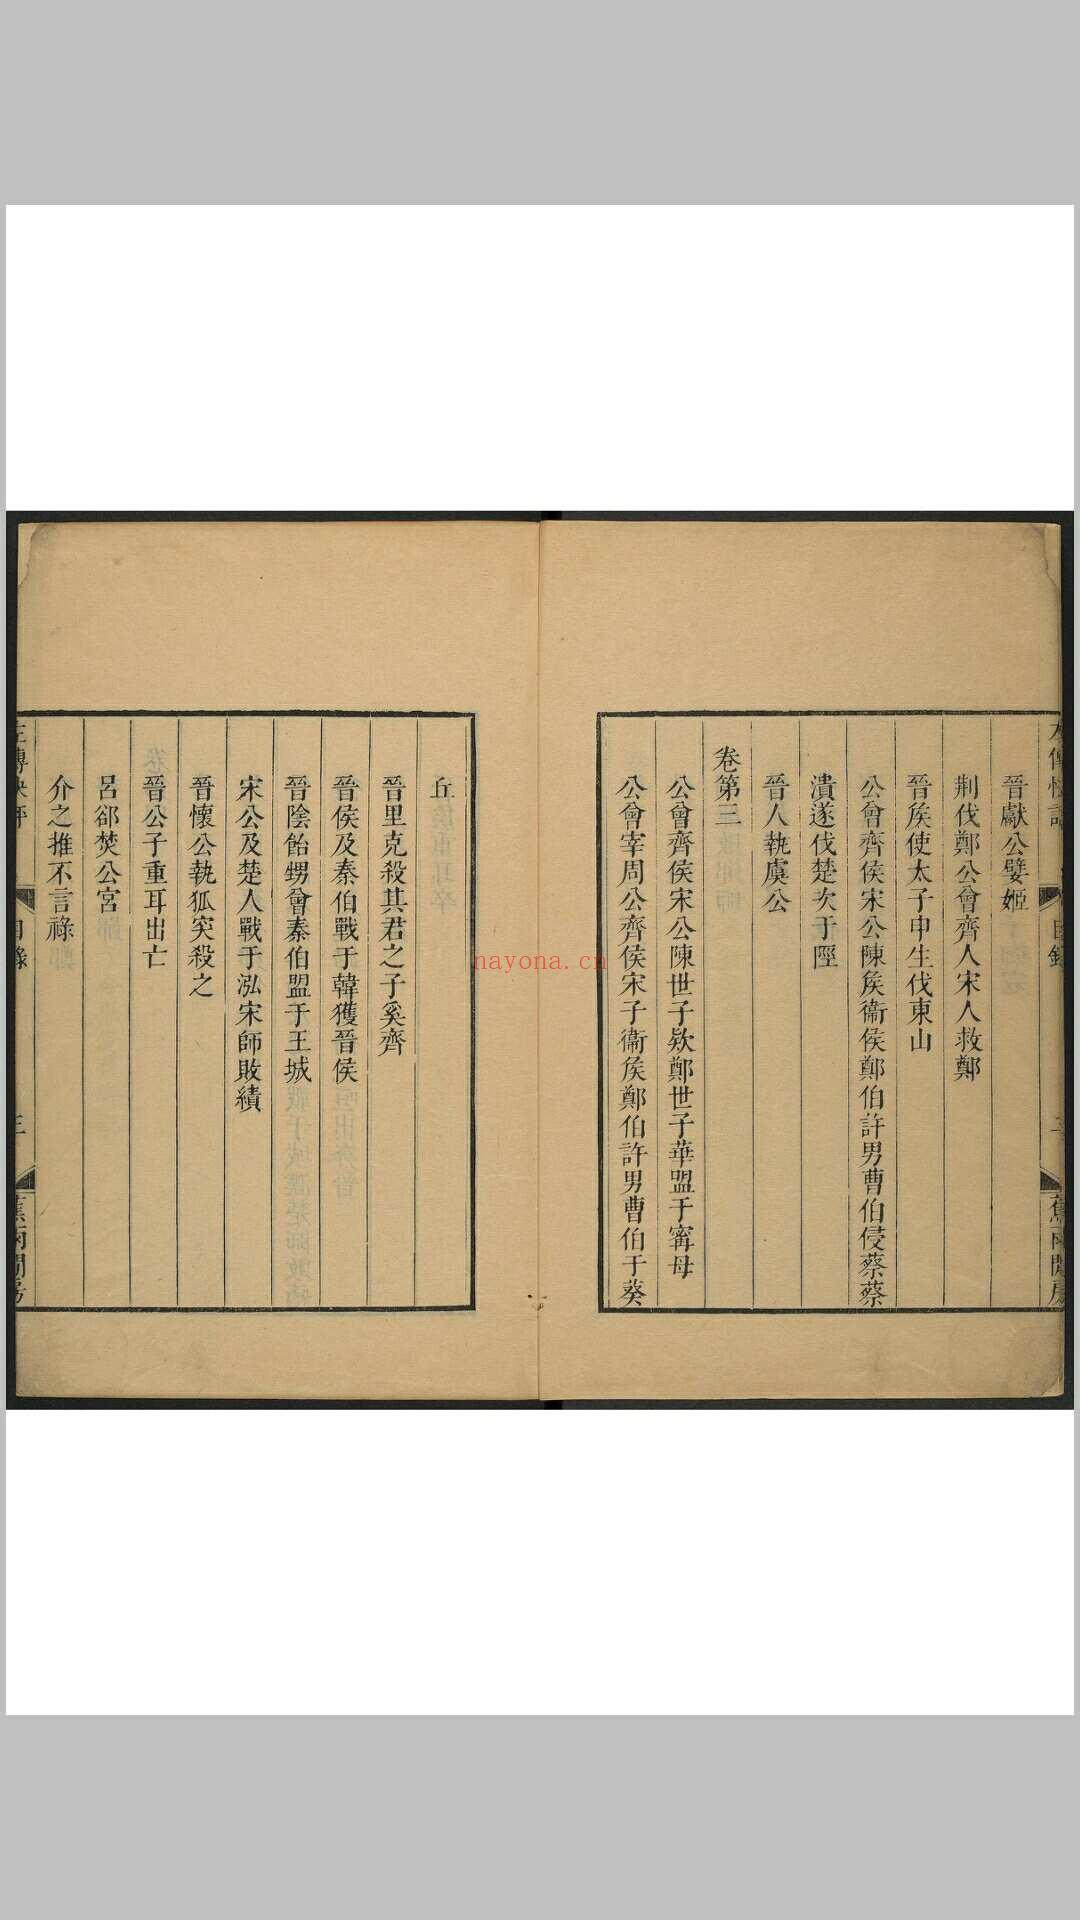 晉獻公嬖姬
荆伐鄭公會齊人宋人救鄭
晉矦使太子申生伐東山
公會齊侯宋公陳矦衞侯鄭伯許男曹伯侵蔡蔡
潰遂伐楚次于陘
晉人執虞公
卷第三
公會齊侯宋公陳世子欵鄭世子華盟于甯母
公會宰周公齊侯宋子衞矦鄭伯許男曹伯于葵
丘
晉里克殺其君之子奚齊
晉侯及秦伯戰于韓獲晉侯
晉陰飴甥會秦伯盟于王城
宋公及楚人戰于泓宋師敗績
晉懷公執狐突殺之
晉公子重耳出亡
呂郤焚公宮
介之推不言祿
目錄
三
蕉雨閒房
nayona.cn